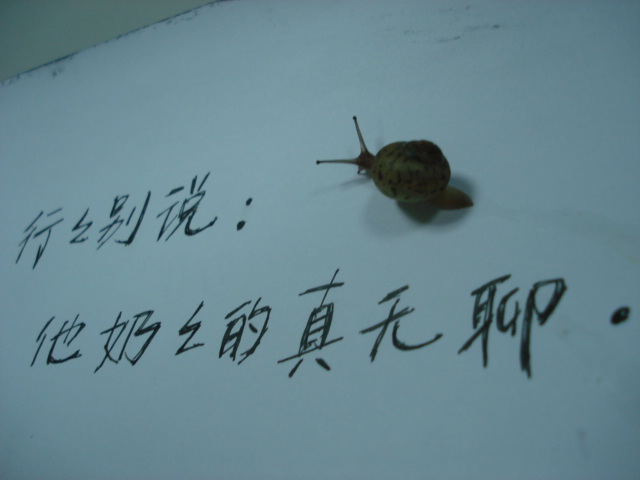 行々别说：
他奶々的真无聊.